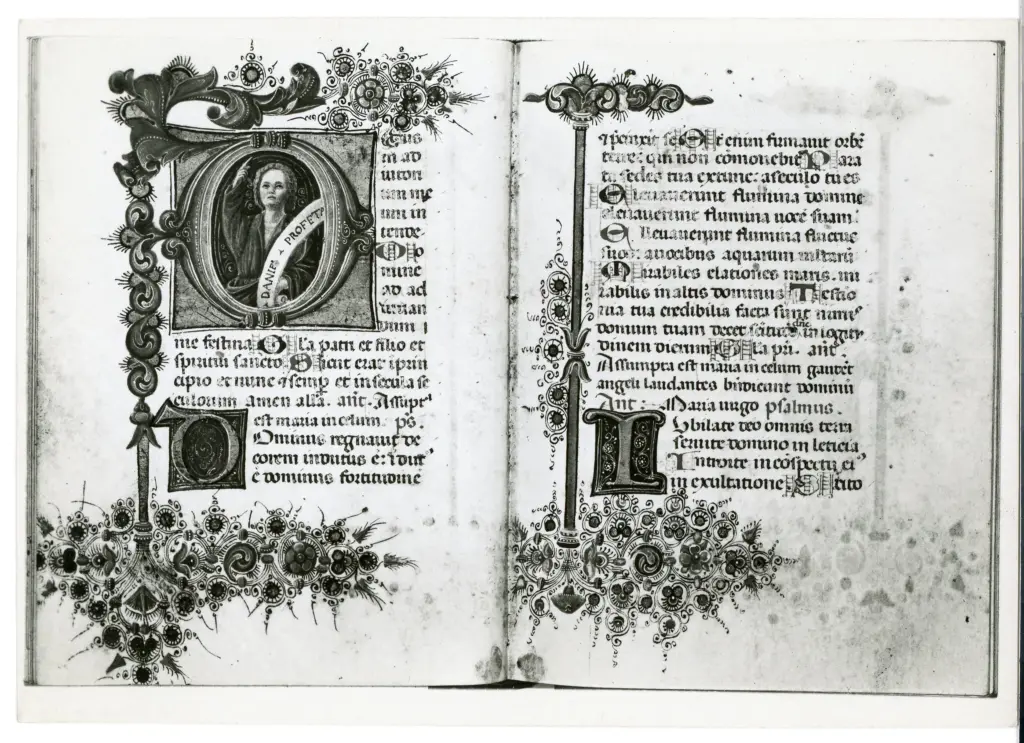 DANIEL PROFETA
eus
in ad
iutori
um me
um in
tende
Do
mine
ad ad
iuvan
dum
me festina Gl̄a patri et filio et
spiritui sancto Sicut erat i prin
cipio et nunc ⁊ semp et in secula se
culorum amen all̄a. an̄t. Assupt
est maria in celum. ps̄.
Dominus regnauit de
corem indutus ē: idut
ē dominus fortitudine
⁊ precinxit se Et enim firmauit orbē
terre: qui non cōmouebit Para
ta sedes tua ex tunc: a seculo tu es
Eleuauerunt flumina domine
eleuauerunt flumina uocē suam:
Eleuauerunt flumina fluctus
suos: a uocibus aquarum multarū
Mirabiles elationes maris. mi
rabilis in altis dominus Testio
nia tua credibilia facta sunt nimis
domum tuam decet scītudo dn̄e in logitu
dinem dierum Gl̄a pr̄i. an̄t.
Assumpta est maria in celum gaudēt
angeli laudantes bn̄dicunt dominū
Ant: Maria uirgo psalmus.
Iubilate deo omnis terra
seruite domino in leticia
Introite in cōspectu ei
in exultatione Scito